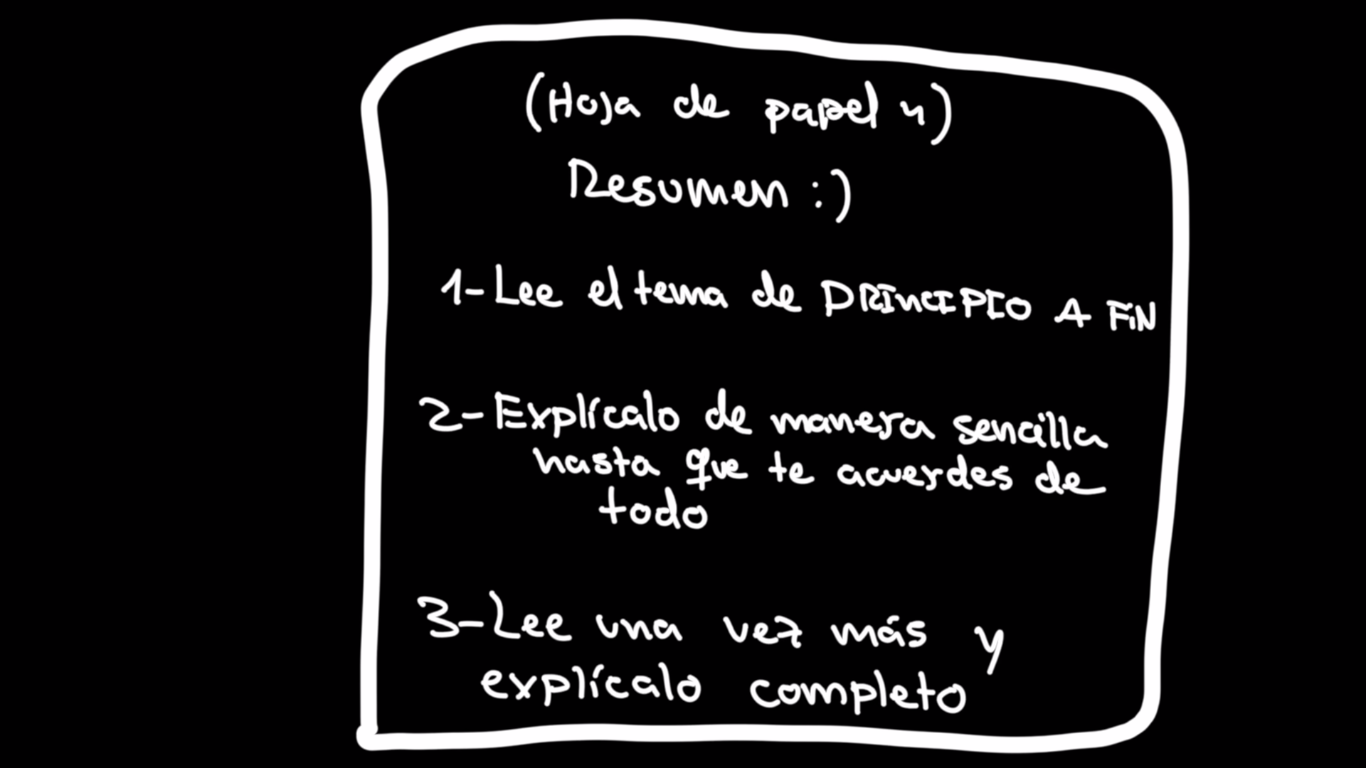 (Hoja de papel 4)
Resumen :)
1-Lee el tema de PRINCIPIO A FIN
2-Explícalo de manera sencilla
hasta que te acuerdes de
todo
3-Lee una vez más y
explícalo completo